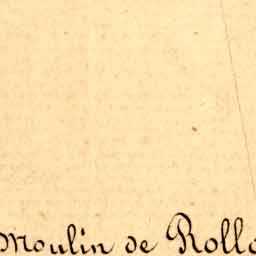 Moulin de Rollo